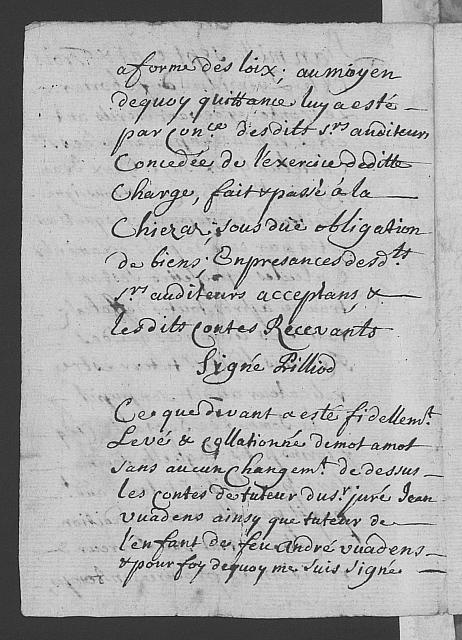 a forme des loix; au moyen
dequoy quittance luy a esté
par con.ce desdits s.rs auditeurs
Concedée de l'exercice deditte
Charge, fait & passé à la
Chiezaz; sous due obligation
de biens; En presances desd.ts
s.rs auditeurs acceptans &
lesdits contes Recevants
Signé Pilliod
Ce que devant a esté fidellem.t
Levé & collationné demot amot
sans aucun changem.t de dessus
les contes de tuteur du s.r juré Jean
vuadens ainsy que tuteur de
l'enfant de feu andré vuadens
& pour foy dequoy me suis signé